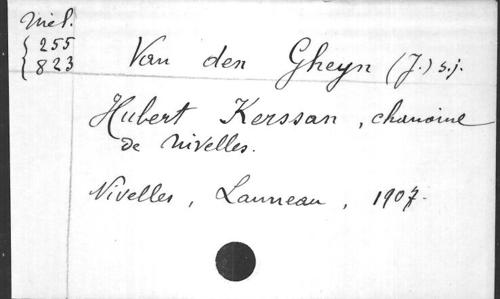 Mél.
255
823
Van den Gheyn (J.) s.j.
Hubert Kerssan, chanoine
de Nivelles.
Nivelles, Lanneau, 1907.